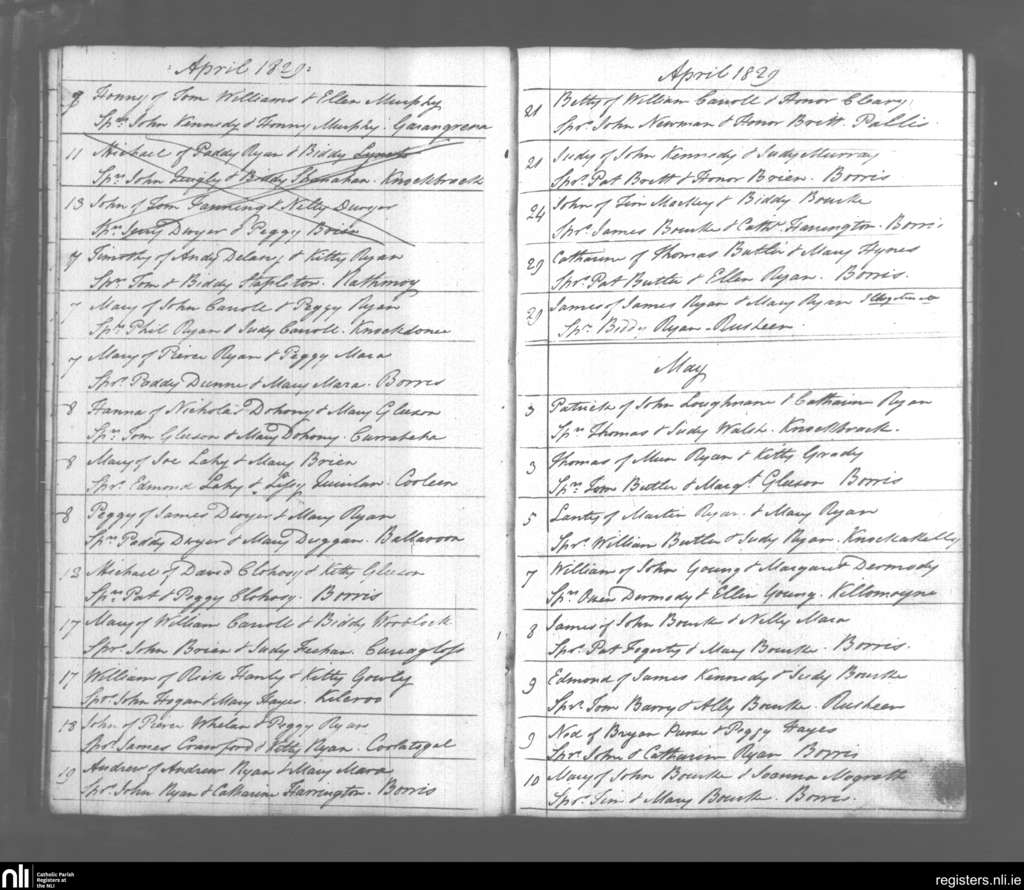 April 1829
9 Honny of Tom Williams & Ellen Murphy
Sprs John Kennedy & Honny Murphy. Garangrena
11 Michael of Paddy Ryan & Biddy
Sprs John & Biddy Knockbrack
13 John of Tom Fanning & Nelly Dwyer
Sprs Dwyer & Peggy Brien
7 Timothy of Andy Delany & Kitty Ryan
Sprs Tom & Biddy Stapleton. Rathmoy
7 Mary of John Carroll & Peggy Ryan
Sprs Phil Ryan & Judy Carroll. Knockdonee
7 Mary of Pierce Ryan & Peggy Mara
Sprs Paddy Dunne & Mary Mara. Borris
8 Hanna of Nicholas Dohony & Mary Gleeson
Sprs Tom Gleeson & Mary Dohony. Currabeha
8 Mary of Joe Lahy & Mary Brien
Sprs Edmond Lahy & Quinlan. Cooleen
8 Peggy of James Dwyer & Mary Ryan
Sprs Paddy Dwyer & Mary Duggan. Ballaroon
12 Michael of David Clohosy & Kitty Gleeson
Sprs Pat & Peggy Clohosy. Borris
17 Mary of William Carroll & Biddy Woodlock
Sprs John Brien & Judy Feehan.
17 William of Rick Hanly & Kitty
Sprs John Hogan & Mary Hayes. Kileroo
18 John of Pierce Whelan & Peggy Ryan
Sprs James Crawford & Kitty Ryan. Coolatogal
19 Andrew of Andrew Ryan & Mary Mara
Sprs John Ryan & Catharine Harrington. Borris
April 1829
21 Betty of William Carroll & Honor Cleary
Sprs John Newman & Honor Brett. Pallis
21 Judy of John Kennedy & Judy Murray
Sprs Pat Brett & Honor Brien. Borris
24 John of Tim Mackey & Biddy Bourke
Sprs James Bourke & Cath Harrington. Borris
29 Catharine of Thomas Butler & Mary Hynes
Sprs Pat Butler & Ellen Ryan. Borris
29 James of James Ryan & Mary Ryan Illegitimate
Sprs Biddy Ryan. Rusheen
May
3 Patrick of John Loughnane & Catharine Ryan
Sprs Thomas & Judy Walsh. Knockbrack.
3 Thomas of Mun Ryan & Kitty Grady
Sprs Tom Butler & Margt Gleeson Borris
5 Lanty of Martin Ryan & Mary Ryan
Sprs William Butler & Judy Ryan. Knockakelly
7 William of John Young & Margaret Dermody
Sprs Owen Dermody & Ellen Young. Killomoyne
8 James of John Bourke & Nelly Mara
Sprs Pat Fogerty & Mary Bourke. Borris.
9 Edmond of James Kennedy & Judy Bourke
Sprs Tom Barry & Ally Bourke. Rusheen
9 Ned of Bryan & Peggy Hayes
Sprs John & Catharine Ryan Borris
10 Mary of John Bourke & Joanna Magrath
Sprs Jim & Mary Bourke. Borris.
nli Catholic Parish
Registers at
the NLI
registers.nli.ie